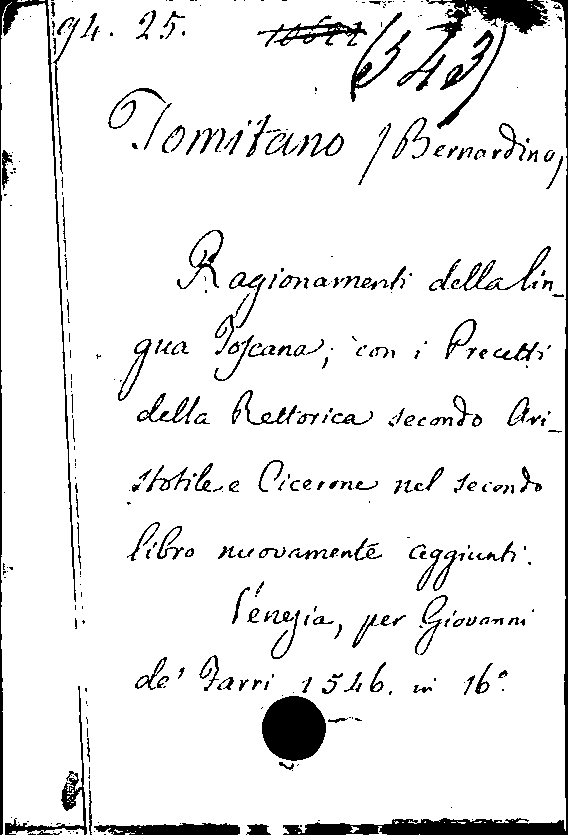 94. 25. (343)
Tomitano /Bernardino,
Ragionamenti della lin_
gua Toscana; con i Precetti
della Rettorica secondo Ari_
stotile e Cicerone nel secondo
libro nuovamente aggiunti.
Venezia, per Giovanni
de' Farri 1546. in 16°.